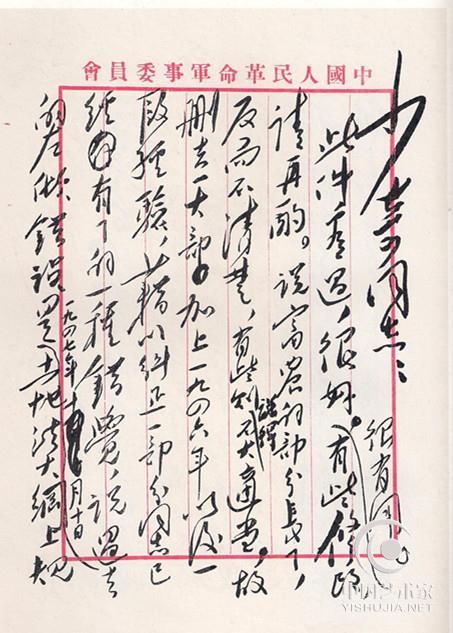 中國人民革命軍事委員會
少奇同志：
此件看過，很好。有些修改，
很有用。
請再酌。說富农的部分長了，
反而不清楚，有些則不大適当，故
删去一大部，加上一九四六年以後一
段經驗，藉以糾正一部分同志已
經有了的一種錯覺，說過去
的左傾錯誤是土地法大綱上規
一九四七年十月十日
中国艺术家
YISHUJIA.NET